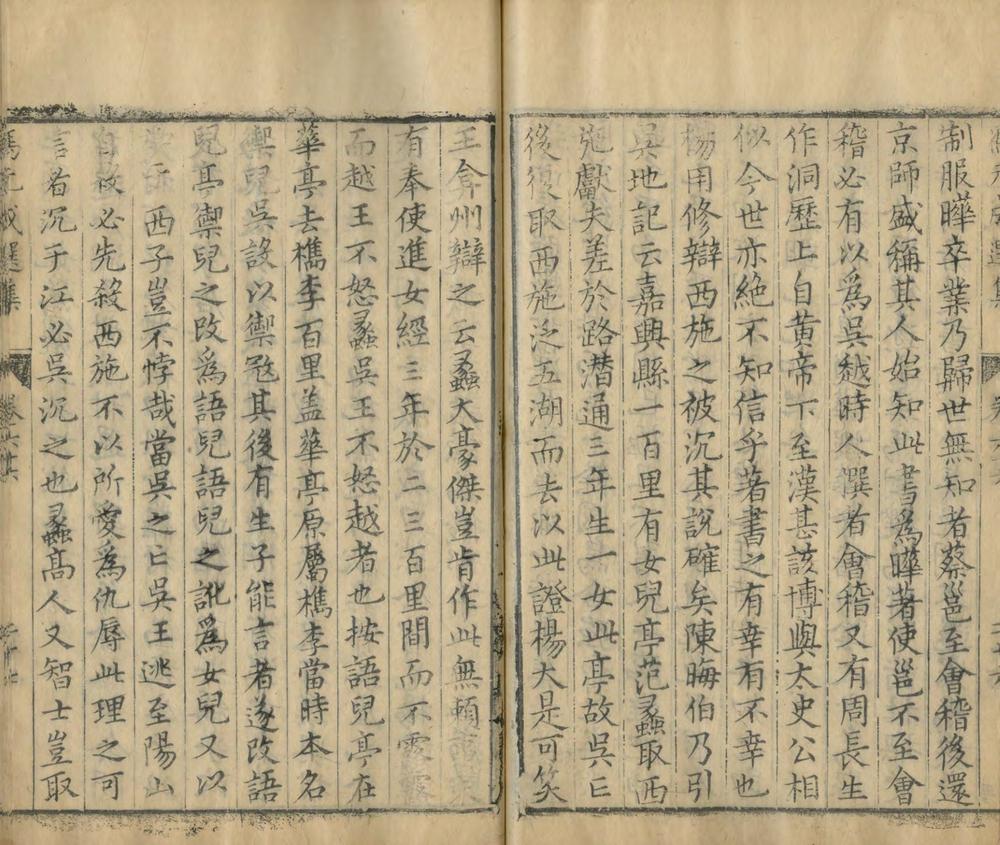 制服曄卒業乃歸世無知者蔡邕至會稽後還
京師盛稱其人始知此書為曄著使邕不至會
稽必有以爲吳越時人撰者會稽又有周長生
作洞歷上自黃帝下至漢甚該博與太史公相
似今世亦絶不知信乎著書之有幸有不幸也
楊用修辯西施之被沉其說確矣陳晦伯乃引
吳地記云嘉興縣一百里有女兒亭范蠡取西
施獻夫差於路潛通三年生一女此亭故吳亡
後復取西施泛五湖而去以此證楊大是可笑
王弇州辯之云蠡大豪傑豈肯作此無賴
有奉使進女經三年於二三百里間而不露
而越王不怒蠡吳王不怒越者也按語兒亭在
華亭去檇李百里盖華亭原屬檇李當時本名
禦兒吳設以禦𡨥其後有生子能言者遂改語
兒亭禦兒之改爲語兒語兒之訛爲女兒又以
西子豈不悖哉當吳之亡吳王逃至陽山
自殺必先殺西施不以所愛爲仇辱此理之可
言者沉于江必吳沉之也蠡高人又智士豈取
選集
卷六